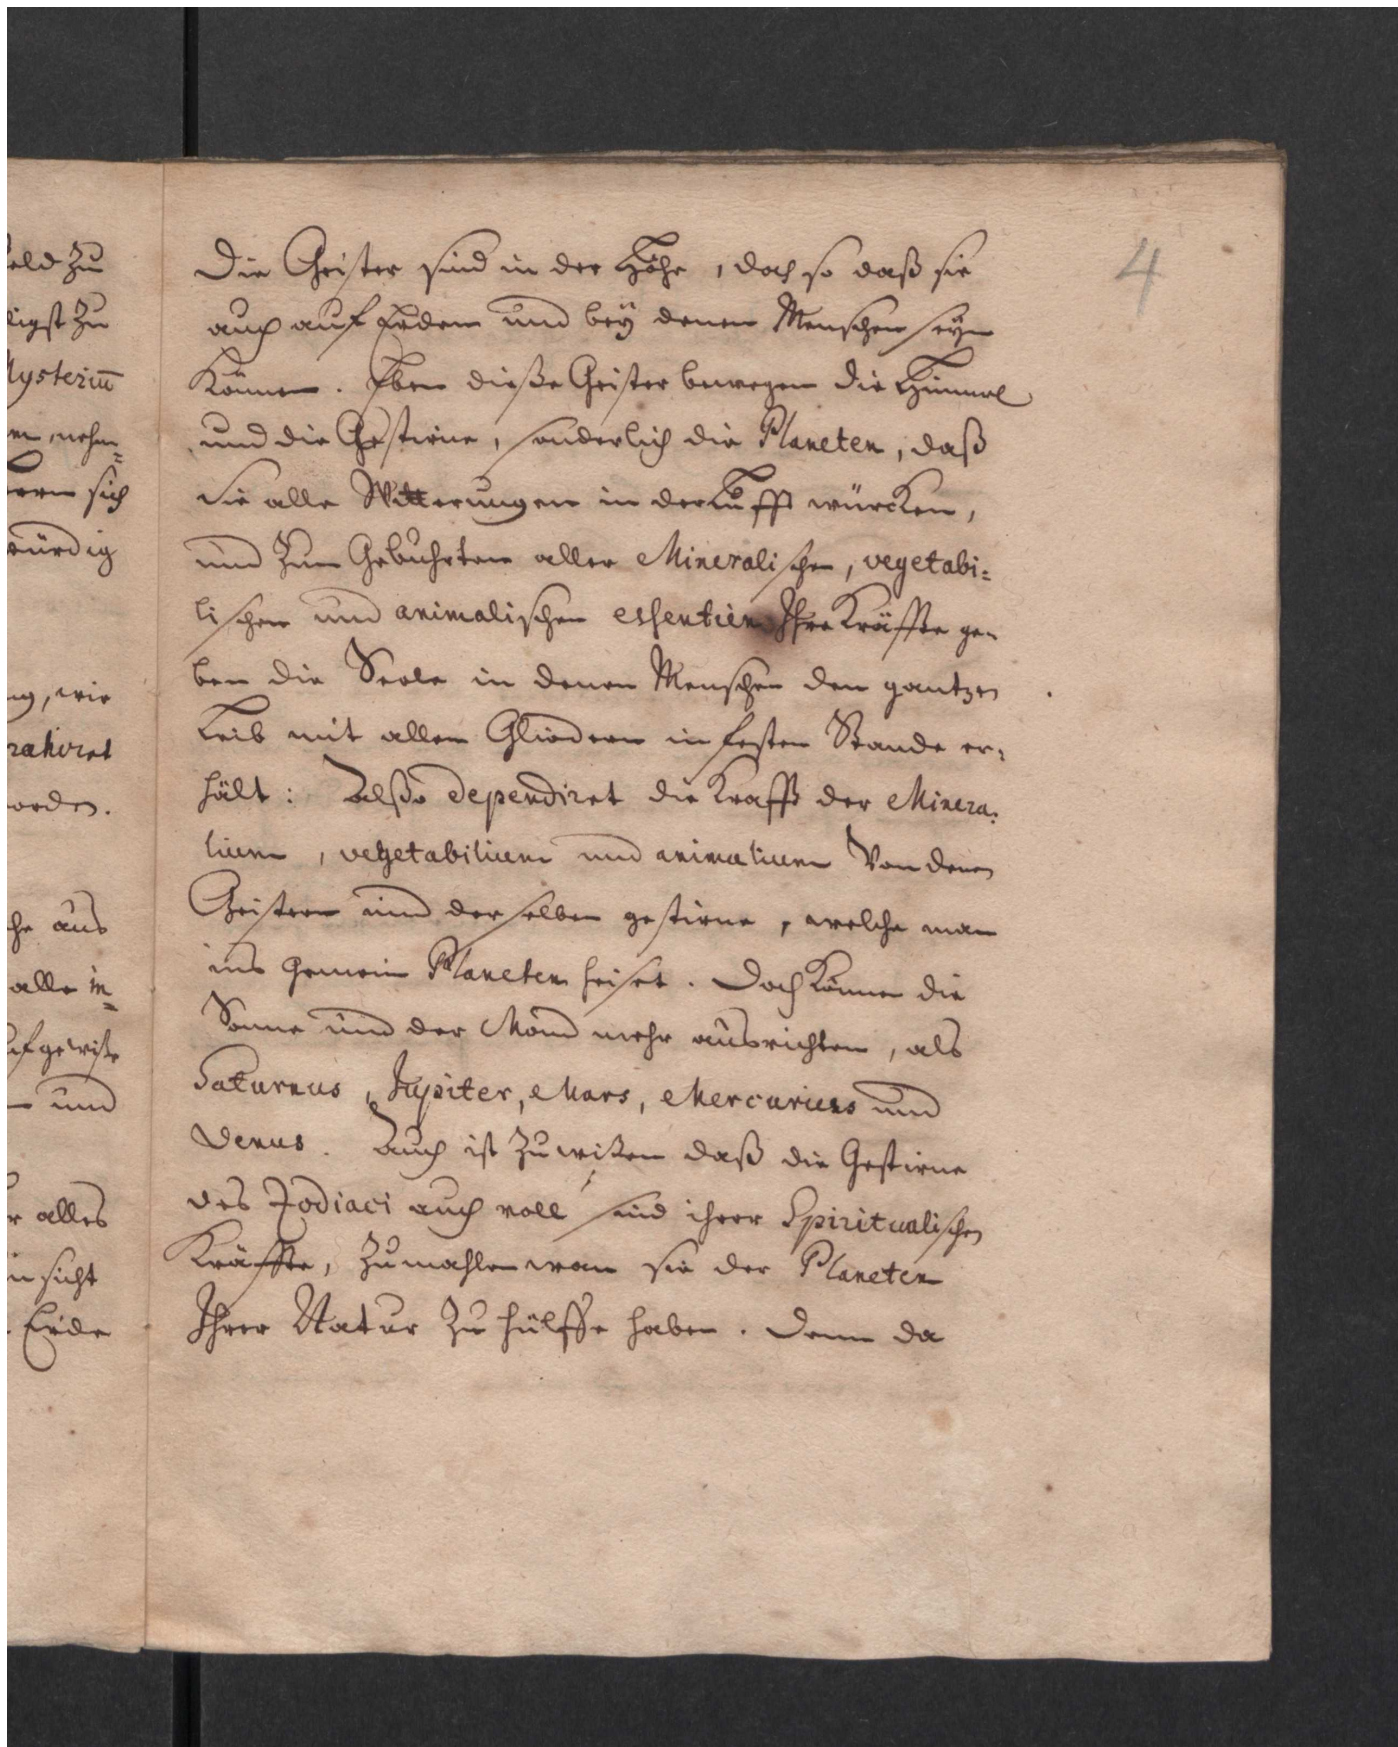 4
Die Geister sind in der Höhe, doch so daß sie
auch auf Erden und bey denen Menschen seyn
Können. Eben dieße Geister bewegen die Himmel
und die Gestirne, sonderlich die Planeten, daß
sie alle Witterungen in der Lufft würcken,
und zum Gebuhrten aller Mineralischen, vegetabi=
lischen und animalischen essentien Ihre Kräffte ge=
ben die Seele in denen Menschen den gantzen
Leib mit allen Gliedern in festen Stande er=
hält: Alßo dependiret die Krafft der Minera=
lium, vegetabilium und animalium Von denen
Geistern und derselben gestirne, welche man
ins gemein Planeten heiset. Doch Können die
Sonne und der Mond mehr ausrichten, als
Saturnus, Jupiter, Mars, Mercurius und
Venus. Auch ist zu wißen daß die Gestirne
des Zodiaci auch voll sind ihrer Spiritualischen
Kräffte, zumahlen wan sie der Planeten
Ihrer Natur zu hülffe haben. Denn da
eld zu
ligst zu
Mysteriū
nehm=
sich
würdig
ng, wie
rahiret
orden.
che aus
alle in=
uf gewiße
und
alles
sicht
Erde